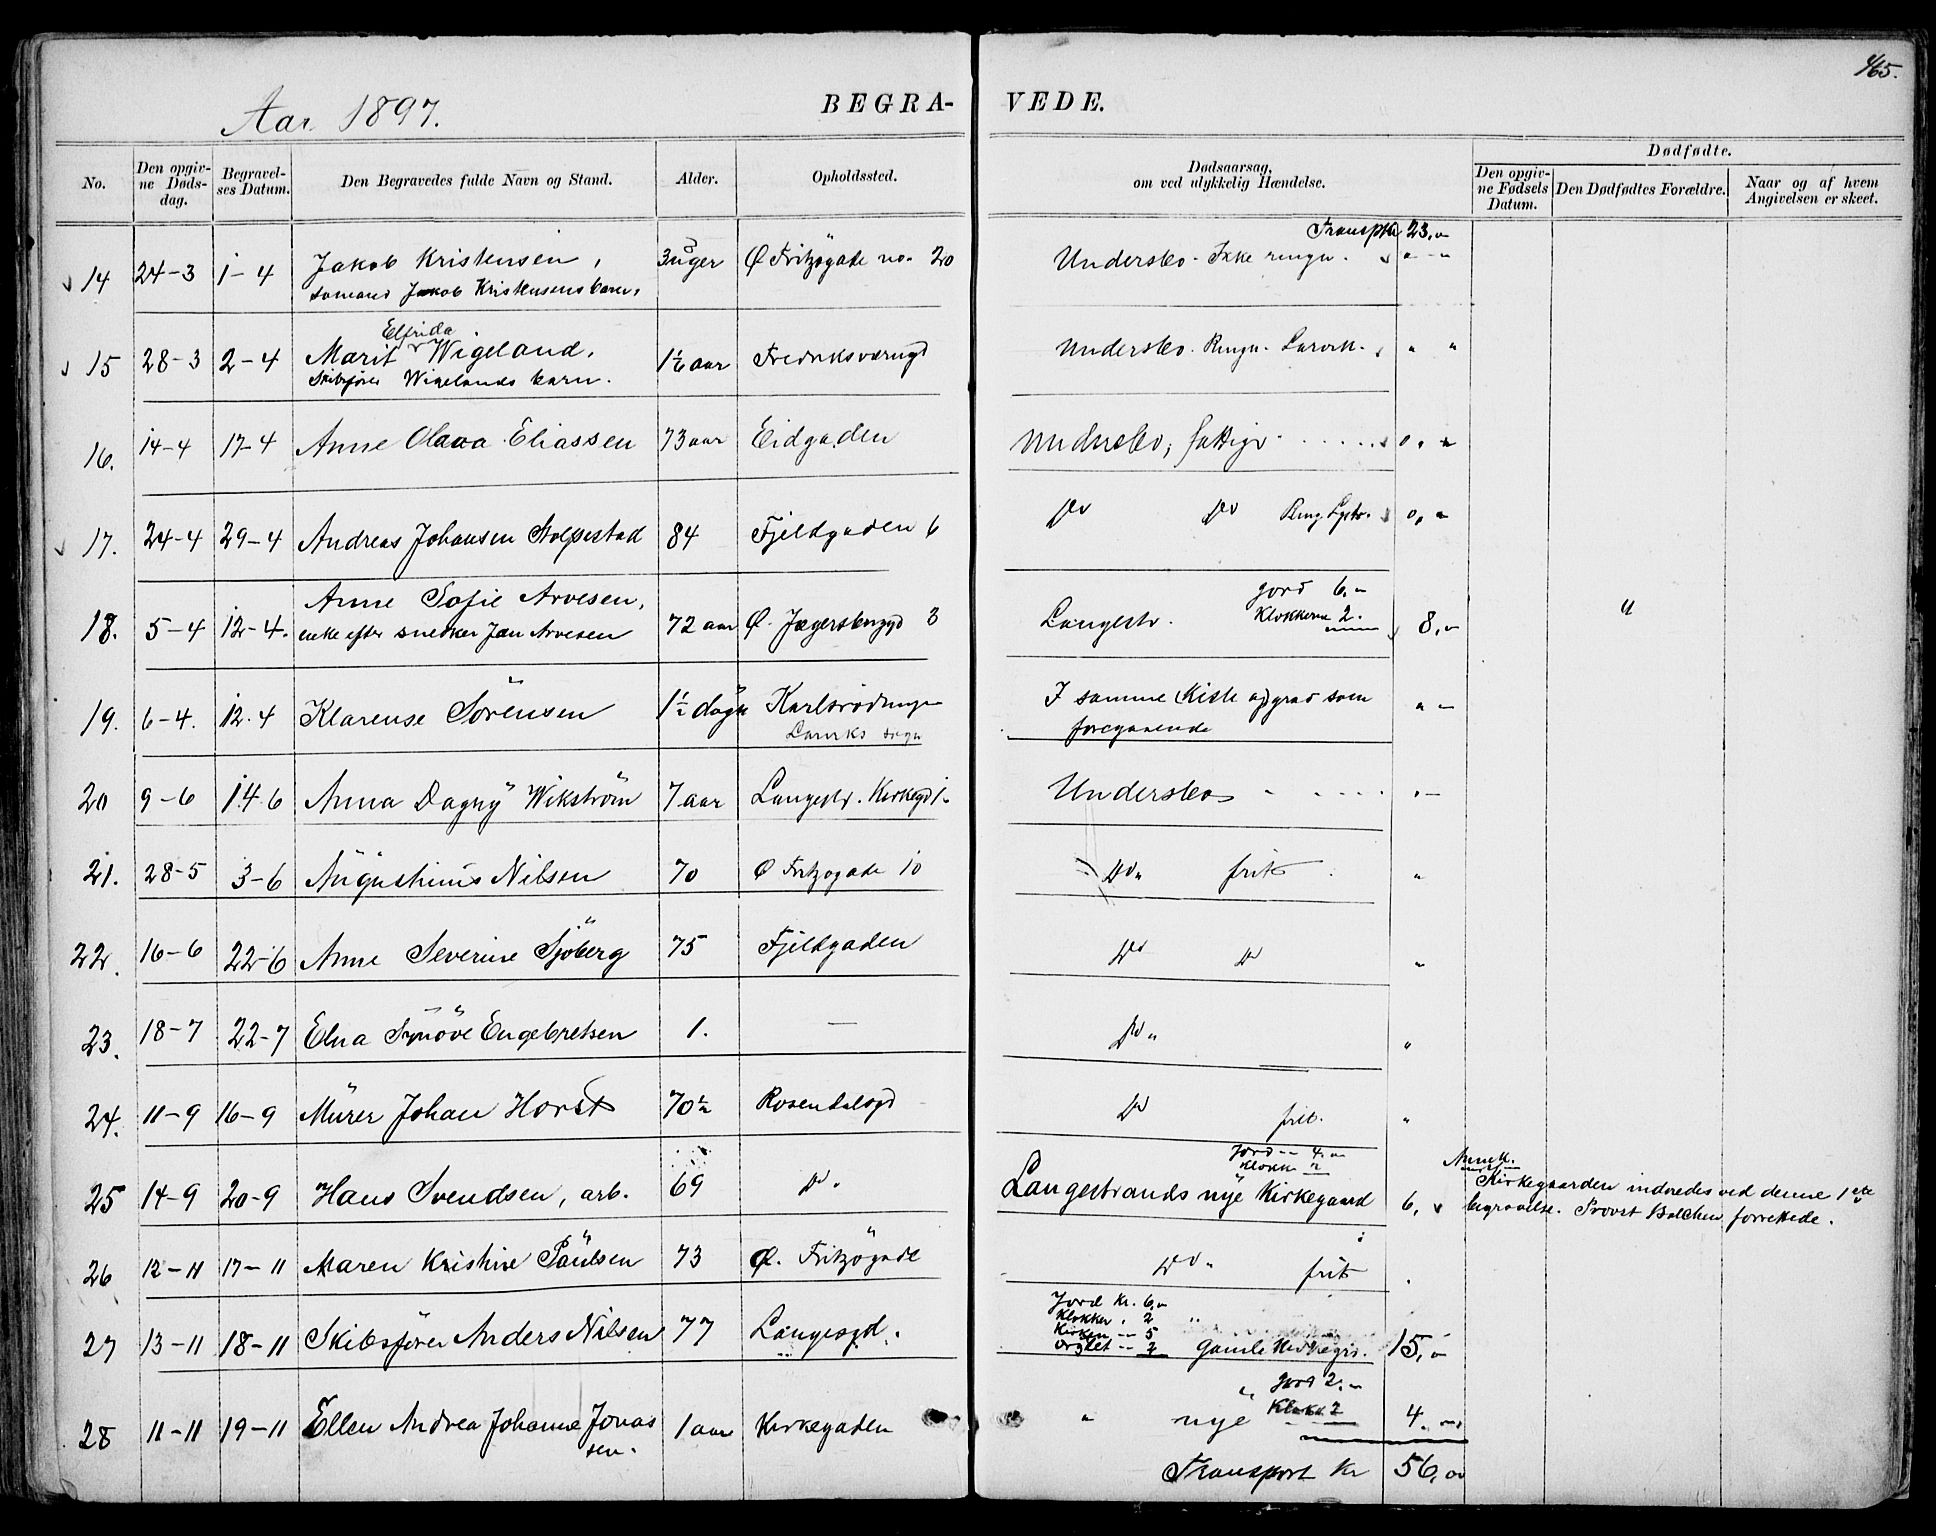 465.
Aar 1897.
BEGRA-
VEDE.
No.
Den opgiv-
ne Døds-
dag.
Begravel-
ses Datum.
Den Begravedes fulde Navn og Stand.
Alder.
Opholdssted.
Dødsaarsag,
om ved ulykkelig Hændelse.
Dødfødte.
Den opgiv-
ne Fødsels
Datum.
Den Dødfødtes Forældre.
Naar og af hvem
Angivelsen er skeet.
Transpkr 23,"
14 24-3 1-4 Jakob Kristensen, 3 uger Ø Fritzøgade no. 20 Undersbo. Ikke ringn. " "
Jakob Kristensens barn.
Elfrida
15 28-3 2-4 Marit Wigeland, 1½ aar Undersbo. Ringn. Larvik. " "
Skibsfører Wigelands barn.
16. 14-4 17-4 Anne Olava Eliassen 73 aar Eidgaden Undersbo, fattigv
17. 24-4 29-4 Andreas Johansen Stolpestad 84 Fjeldgaden 6 Do Do
Jord 6,"
18. 5-4 12-4. Anne Sofie Arvesen, 72 aar Ø. Jægersbrgd 3 Langestr. Klokkerne 2. 8,"
enke efter snedker Jan Arvesen
19. 6-4. 12.4 Klarense Sörensen 1½ døgn I samme Kiste og grav som
Larviks sogn foregaaende
20 9-6 14.6 Anna Dagny Wikström 7 aar Langestr. Kirkegd 1. Undersbo
21. 28-5 3-6 Augustinus Nilsen 70 Ø Fritzøgade 10 Do " frit "
22. 16-6 22-6 Anne Severine Sjöberg 75 Fjeldgaden Do Do "
23. 18-7 22-7 Elna Synöve Engebretsen 1. — Do " "
24. 11-9 16-9 Murer Johan Horst 70½ Rosendalsgd Do frit. "
Jord -- 4."
Klokk 2
25 14-9 20-9 Hans Svendsen, arb. 69 Do. Langestrands nye Kirkegaard 6.
Anm.
Kirkegaarden indviedes ved denne 1ste
begravelse. Provst Balchen forrettede.
26 12-11 17-11 Maren Kristine Paulsen 73 Ø. Fritzögade Do " frit
Jord Kr. 6,"
Klokker " 2
Kirken -- 5
Orglet -- 2
27 13-11 18-11 Skibsfører Anders Nilsen 77 Langesgd. Gamle Kirkegrd. 15,"
Jord 2,"
Klokk. 2
28 11-11 19-11 Ellen Andrea Johanne Jonas 1 aar Kirkegaden " nye 4.
sen.
Transport Kr 56,00